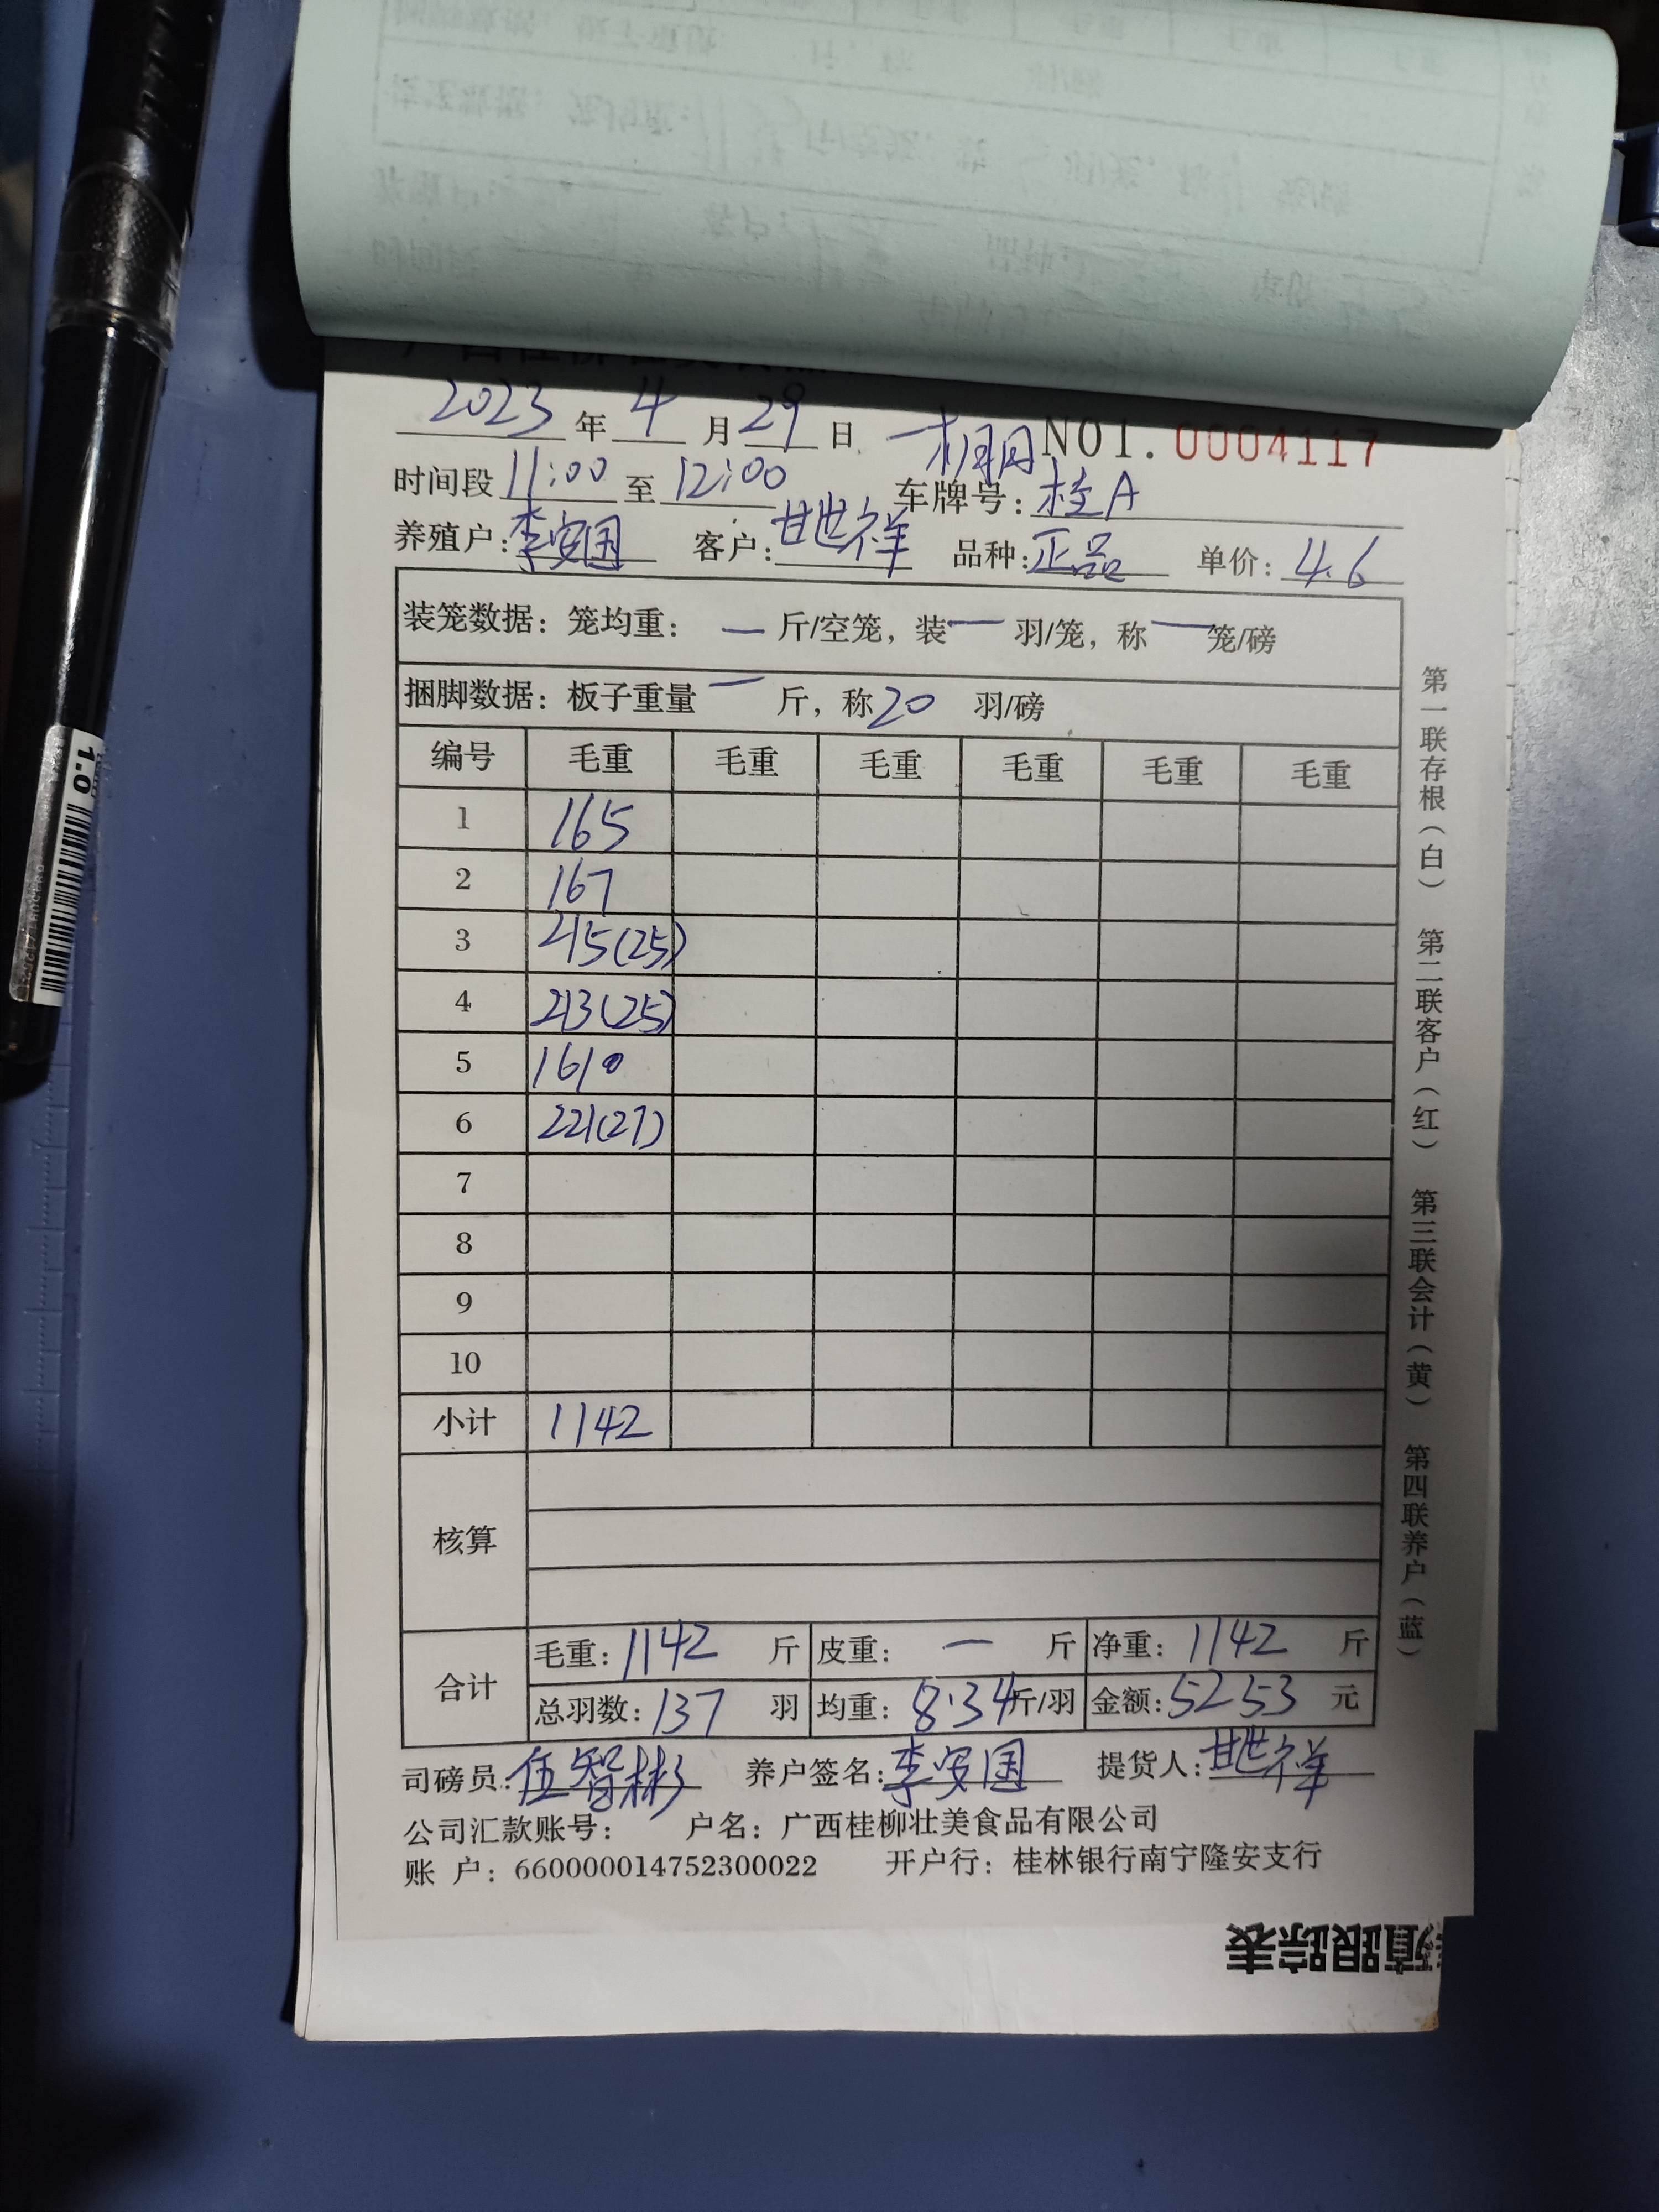 2023 年 4 月 29 日 一棚 NO1. 0004117
时间段 11:00 至 12:00 车牌号: 桂A
养殖户: 李安国 客户: 甘世祥 品种: 正品 单价: 4.6
装笼数据: 笼均重: — 斤/空笼, 装 — 羽/笼, 称 — 笼/磅
捆脚数据: 板子重量 — 斤, 称 20 羽/磅
编号 毛重 毛重 毛重 毛重 毛重 毛重
1 165
2 167
3 215(25)
4 213(25)
5 161
6 221(27)
7
8
9
10
小计 1142
核算
合计 毛重: 1142 斤 皮重: — 斤 净重: 1142 斤
总羽数: 137 羽 均重: 8.34 斤/羽 金额: 5253 元
司磅员: 伍智彬 养户签名: 李安国 提货人: 甘世祥
公司汇款账号: 户名: 广西桂柳壮美食品有限公司
账 户: 660000014752300022 开户行: 桂林银行南宁隆安支行
第一联存根(白) 第二联客户(红) 第三联会计(黄) 第四联养户(蓝)
殖跟踪表
1.0